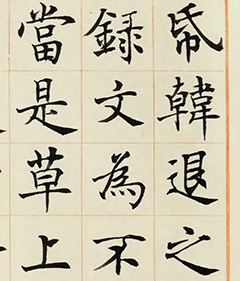 帋韓退之
録文為不
當是草上